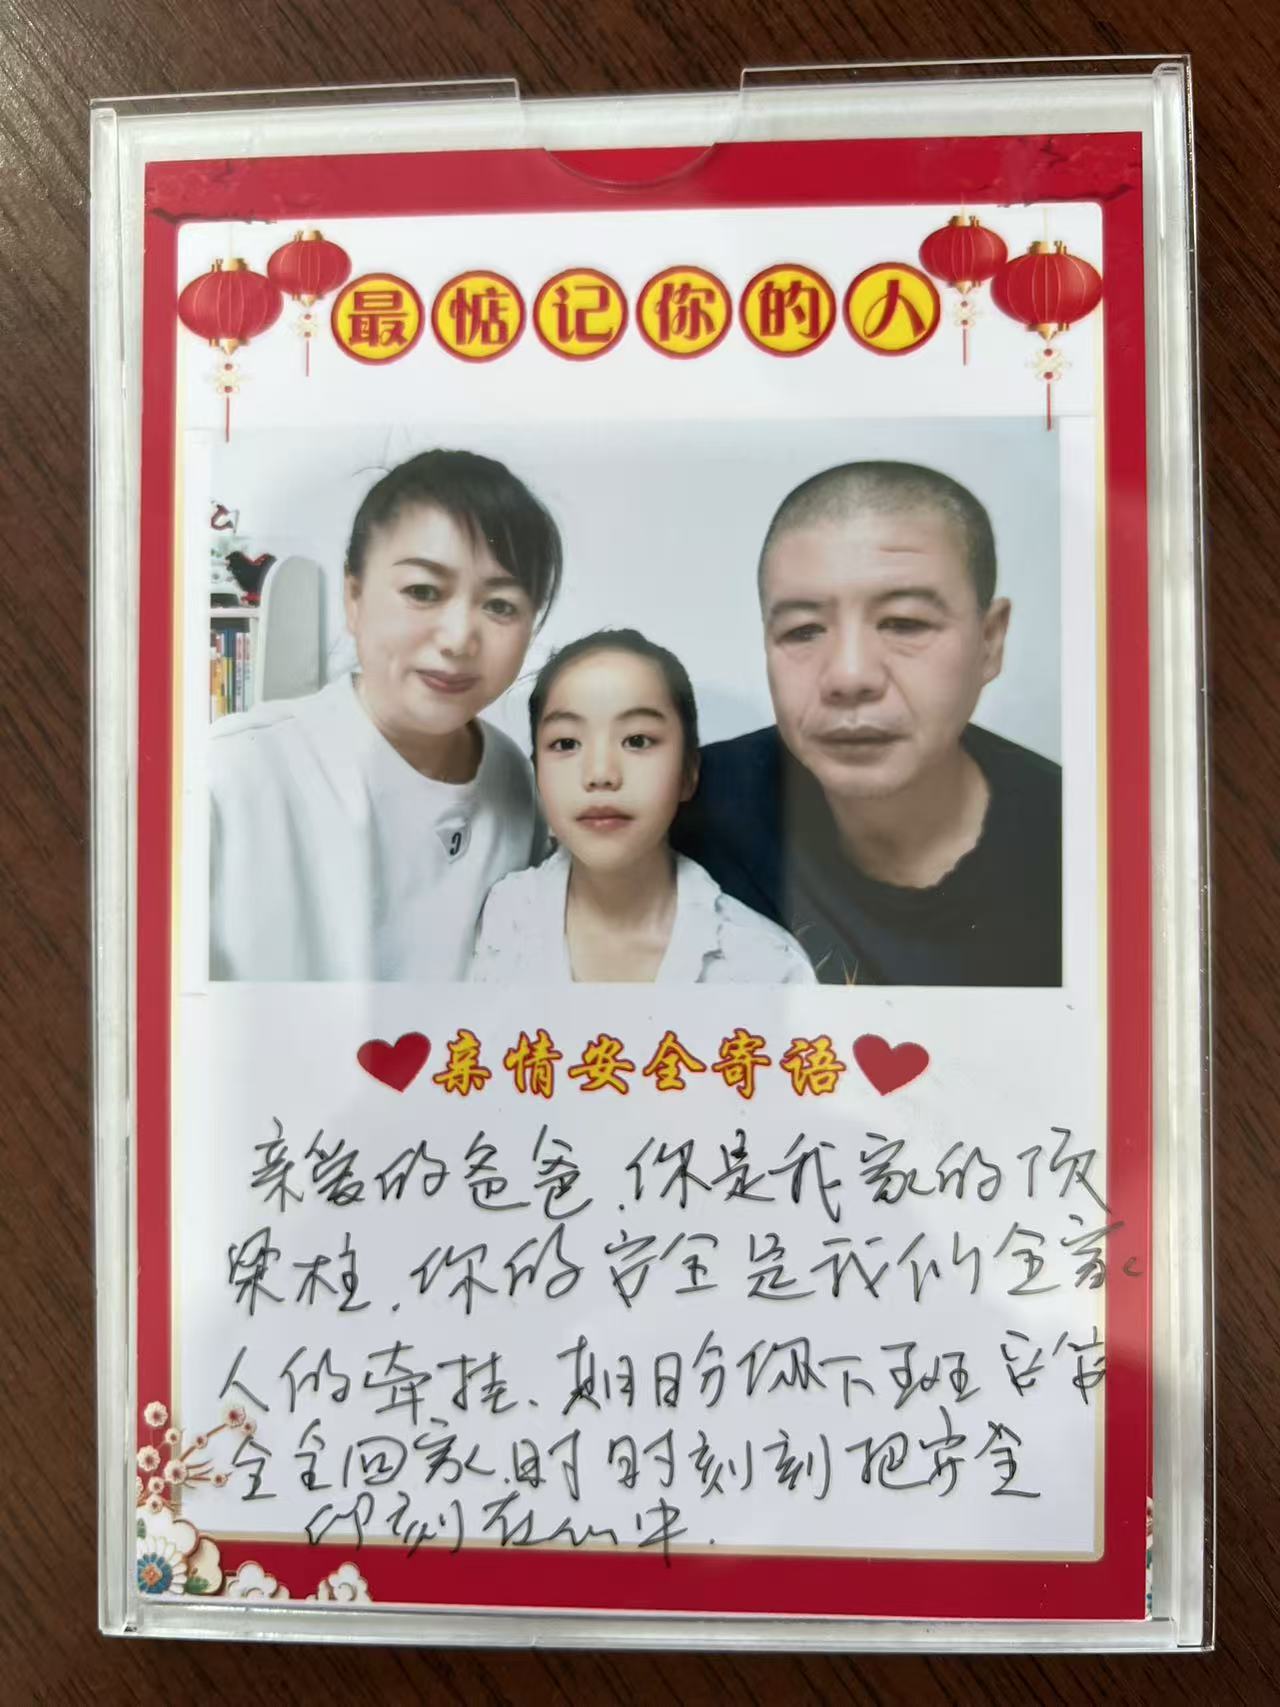 最惦记你的人
亲情安全寄语
亲爱的爸爸.你是我家的顶
梁柱.你的安全是我们全家
人的牵挂.期盼你下班安安
全全回家.时时刻刻把安全
印刻在心中.